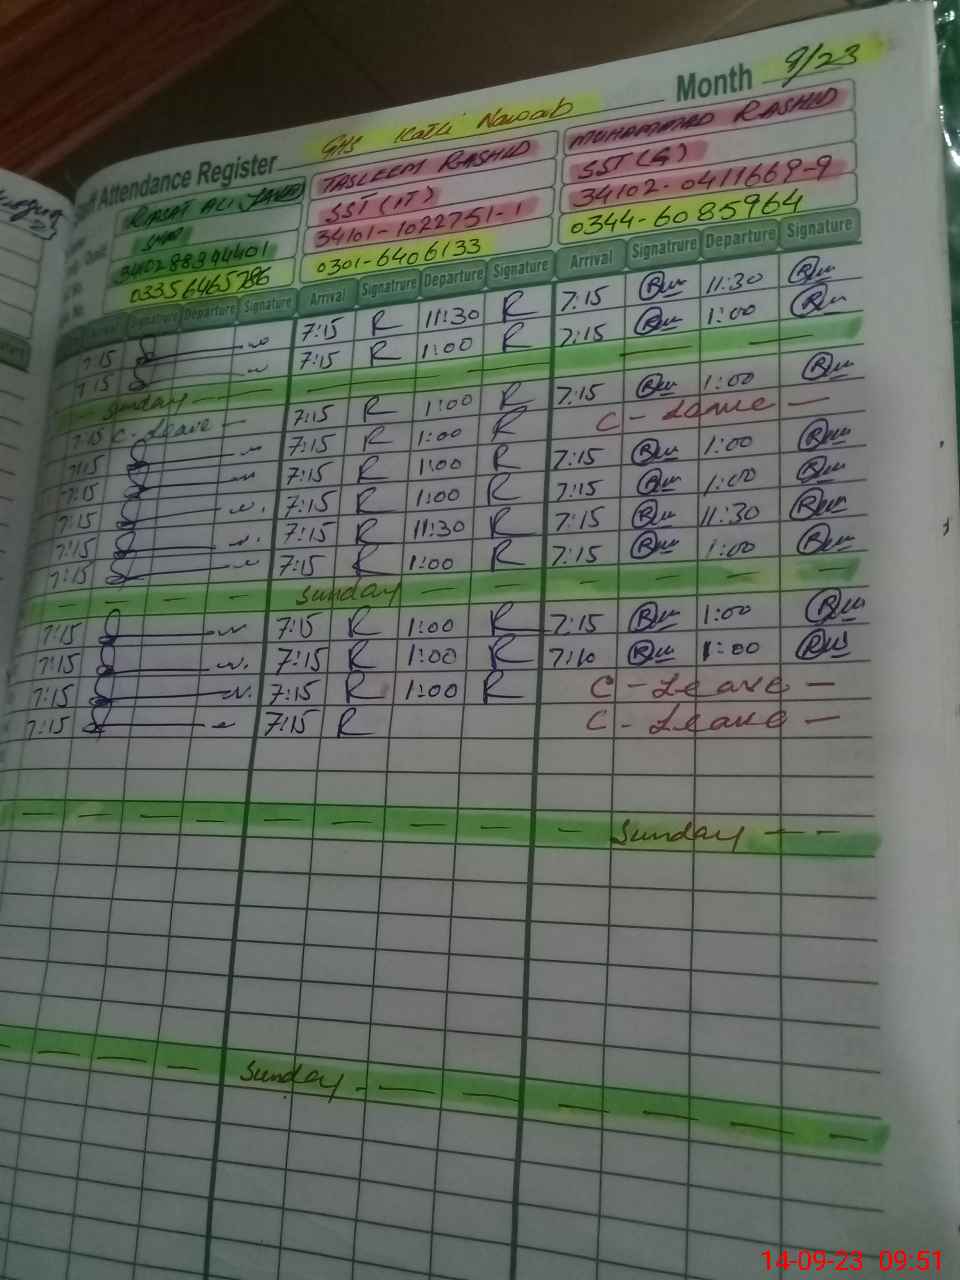 Month 9/23
GHS Kotli Nawab
Staff Attendance Register
RIASAT ALI TASLEEM RASHID MUHAMMAD RASHID
SST (IT) SST (G)
3410288394401 34101-1022751-1 34102-0411669-9
03356465786 0301-6406133 0344-6085964
Arrival Signatrure Departure Signature Arrival Signatrure Departure Signature Arrival Signatrure Departure Signature
7:15 7:15 R 11:30 R 7:15 11:30
7:15 7:15 R 1:00 R 7:15 1:00
Sunday
7:15 C-Leave - 7:15 R 1:00 R 7:15 1:00
7:15 7:15 R 1:00 R C - Leave -
7:15 7:15 R 1:00 R 7:15 1:00
7:15 7:15 R 1:00 R 7:15 1:00
7:15 7:15 R 11:30 R 7:15 11:30
7:15 7:15 R 1:00 R 7:15 1:00
Sunday
7:15 7:15 R 1:00 R 7:15 1:00
7:15 7:15 R 1:00 R 7:10 1:00
7:15 7:15 R 1:00 R C - Leave -
7:15 7:15 R C - Leave -
Sunday
Sunday
14-09-23 09:51